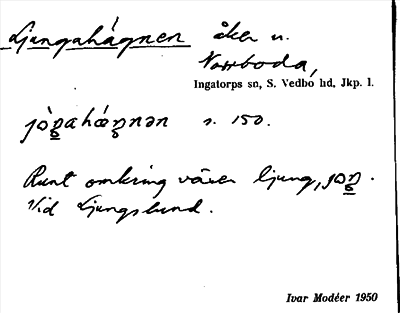 Ljungahägnen åker n.
Norrboda,
Ingatorps sn, S. Vedbo hd, Jkp. l.
s. 150.
Runt omkring växer ljung,
Vid Ljungslund.
Ivar Modéer 1950